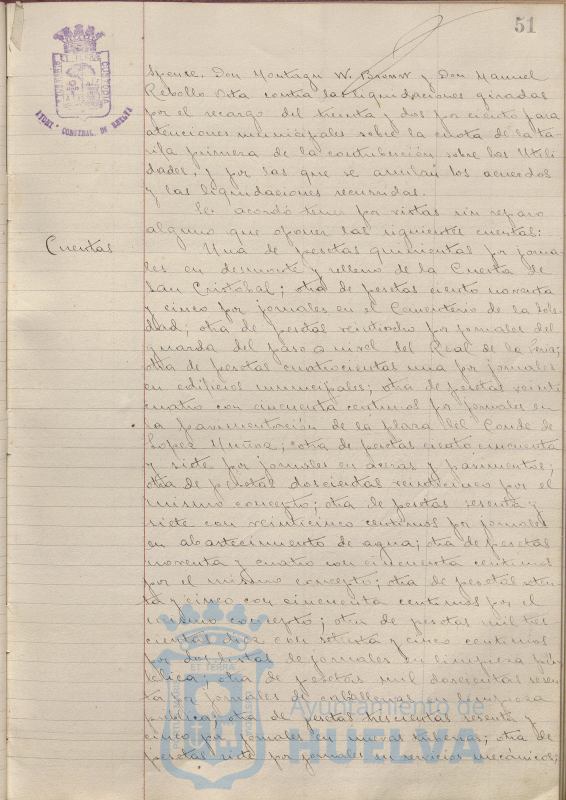 51
Spence, Don Montagu W. Brown y Don Manuel
Rebollo Orta contra las liquidaciones giradas
por el recargo del treinta y dos por ciento para
atenciones municipales sobre la cuota de la ta-
rifa primera de la contribución sobre las Utili
dades, y por las que se anulan los acuerdos
y las liquidaciones recurridas.
Se acordó tener por vistas sin reparo
alguno que oponer las siguientes cuentas:
Cuentas
Una de pesetas quinientas por jorna-
les en desmonte y relleno de la Cuesta de
San Cristobal; otra de pesetas ciento noventa
y cinco por jornales en el Cementerio de la Sole-
dad; otra de pesetas veintiocho por jornales del
guarda del paso a nivel del Real de la Feria;
otra de pesetas cuatrocientas una por jornales
en edificios municipales; otra de pesetas veinti
cuatro con cincuenta centimos por jornales en
la pavimentación de la plaza del Conde de
Lopez Muñoz; otra de pesetas ciento cincuenta
y siete por jornales en aceras y pavimentos;
otra de pesetas doscientas veinticinco por el
mismo concepto; otra de pesetas sesenta y
siete con veinticinco centimos por jornales
en abastecimiento de agua; otra de pesetas
noventa y cuatro con cincuenta centimos
por el mismo concepto; otra de pesetas
y cinco con cincuenta centimos por el
mismo concepto; otra de pesetas mil tres
cientas diez con setenta y cinco centimos
por dos listas de jornales en limpieza pú-
blica; otra de pesetas mil doscientas sesen
ta por jornales de caballerias en limpieza
publica; otra de pesetas trescientas sesenta y
cinco por jornales en nuevas tuberias; otra de
pesetas siete por jornales en servicios mecánicos;
AYUNT. CONSTNAL. DE HUELVA
ET TERRÆ
Ayuntamiento de
HUELVA